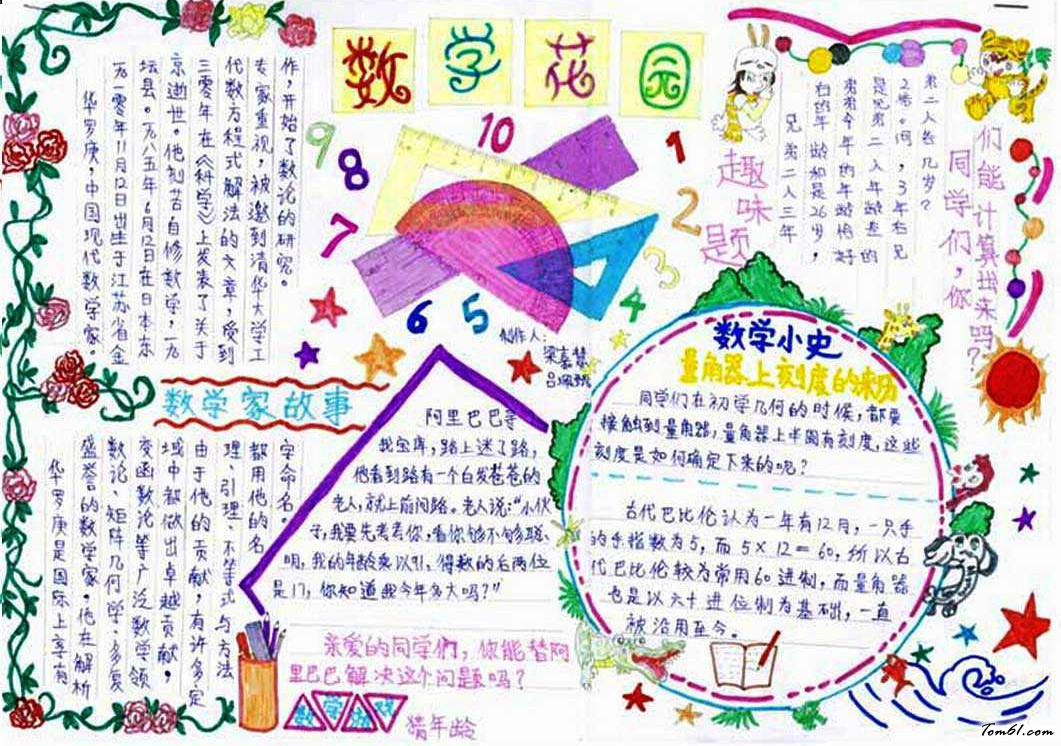 数学花园
华罗庚，中国现代数学家。
一九一零年11月12日出生于江苏省金
坛县。一九八五年6月12日在日本东
京逝世。他刻苦自修数学，一九
三零年在《科学》上发表了关于
代数方程式解法的文章，受到
专家重视，被邀到清华大学工
作，开始了数论的研究。
数学家故事
华罗庚是国际上享有
盛誉的数学家。他在解析
数论、矩阵几何学、多复
变函数论等广泛数学领
域中都做出卓越贡献，
由于他的贡献，有许多定
理、引理、不等式与方法
都用他的名
字命名。
10
9
8
7
6
5
1
2
3
4
创作人：
趣味题
兄弟二人三年
后的年龄和是26岁，
弟弟今年的年龄恰好
是兄弟二人年龄差的
2倍。问，3年后兄
弟二人各几岁？
同学们，你
们能计算出来吗？
阿里巴巴寻
找宝库，路上迷了路，
他看到路有一个白发苍苍的
老人，就上前问路。老人说：“小伙
子，我要先考考你，看你够不够聪
明，我的年龄乘以91，得数的后两位
是17，你知道我今年多大吗？”
亲爱的同学们，你能替阿
里巴巴解决这个问题吗？
数学游戏
猜年龄
数学小史
量角器上刻度的来历
同学们在初学几何的时候，都要
接触到量角器，量角器上半圆有刻度，这些
刻度是如何确定下来的呢？
古代巴比伦认为一年有12月，一只手
的手指数为5，而5×12=60，所以古
代巴比伦较为常用60进制，而量角器
也是以六十进位制为基础，一直
被沿用至今。
Tom61.com